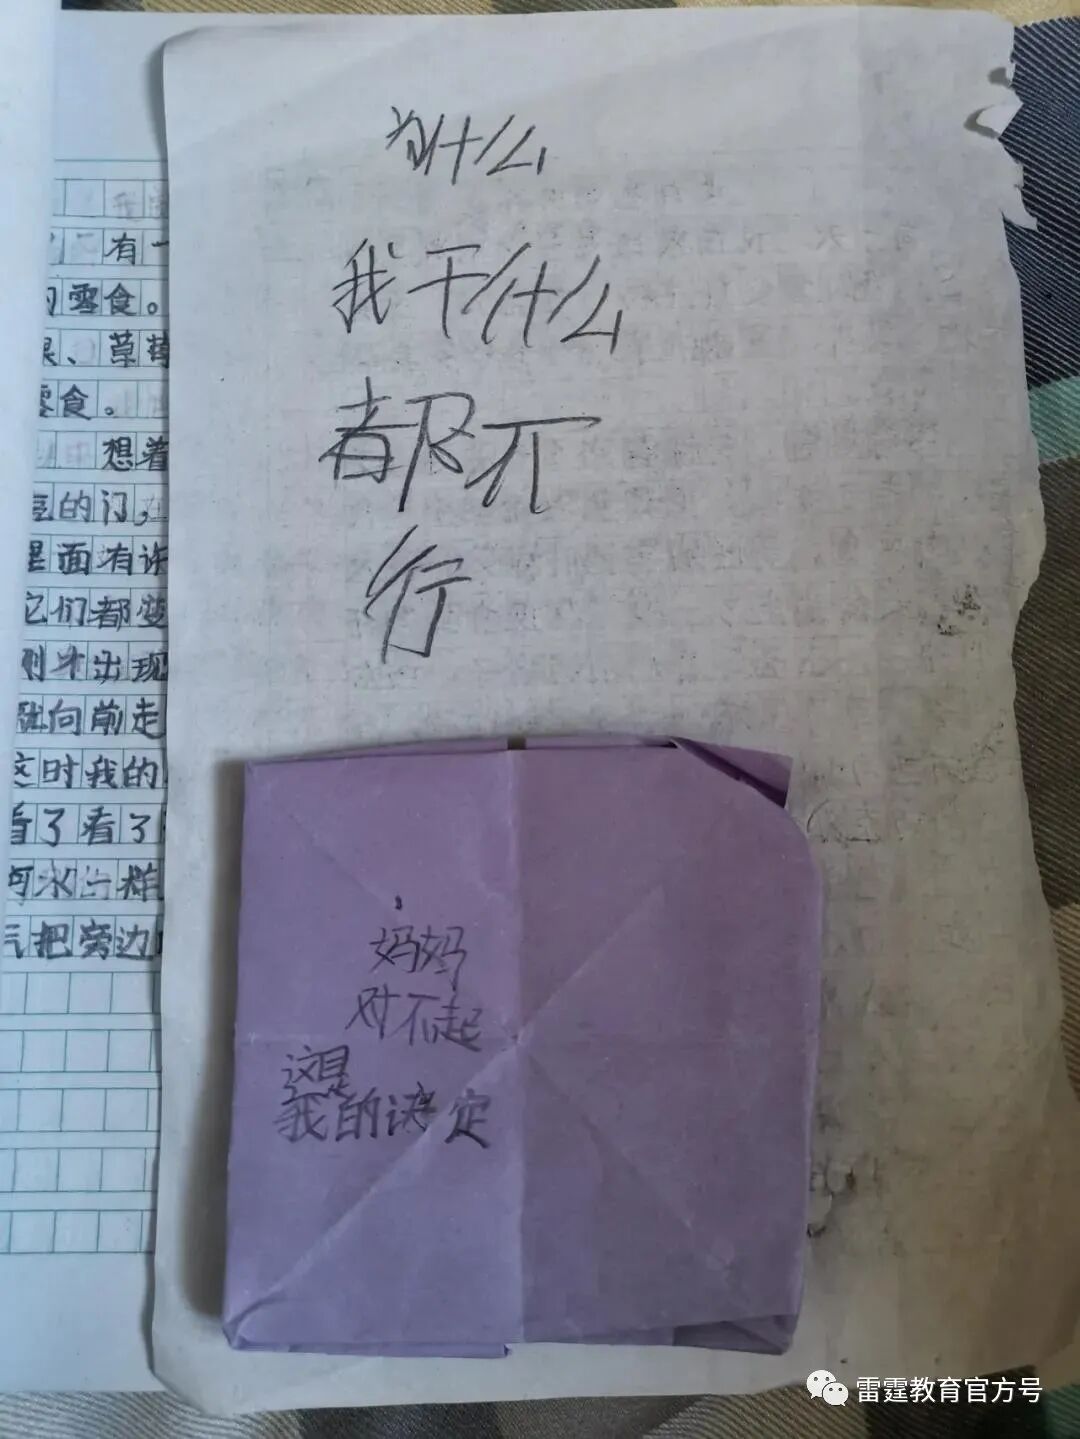 为什么
我干什么
都不
行
妈妈
对不起
这是
我的决定
有一
零食。
、草莓
零食。
想着
的门,
里面有许
它们都变
出现
就向前走
这时我的
看了看了
河水
把旁边
雷霆教育官方号